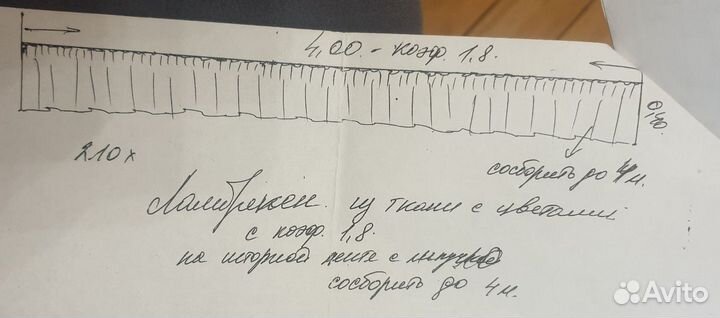 4,00. - коэф. 1,8.
0,40.
210 х
сосборить до 4 м.
Ламбрекен. из ткани с цветами
с коэф. 1,8
на шторной ленте с
сосборить до 4 м.
Avito